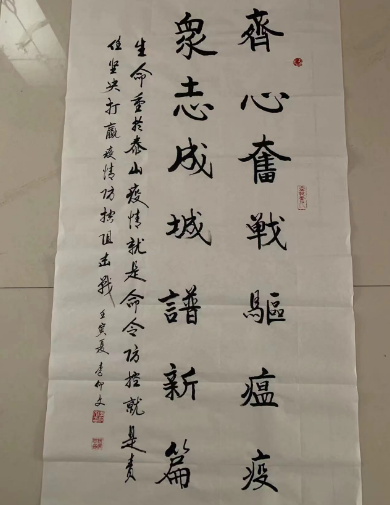 齊心奮戦驅瘟疫
衆志成城譜新篇
生命重於泰山疫情就是命令防控就是責
任坚决打贏疫情防控阻击戰壬寅夏李仰文